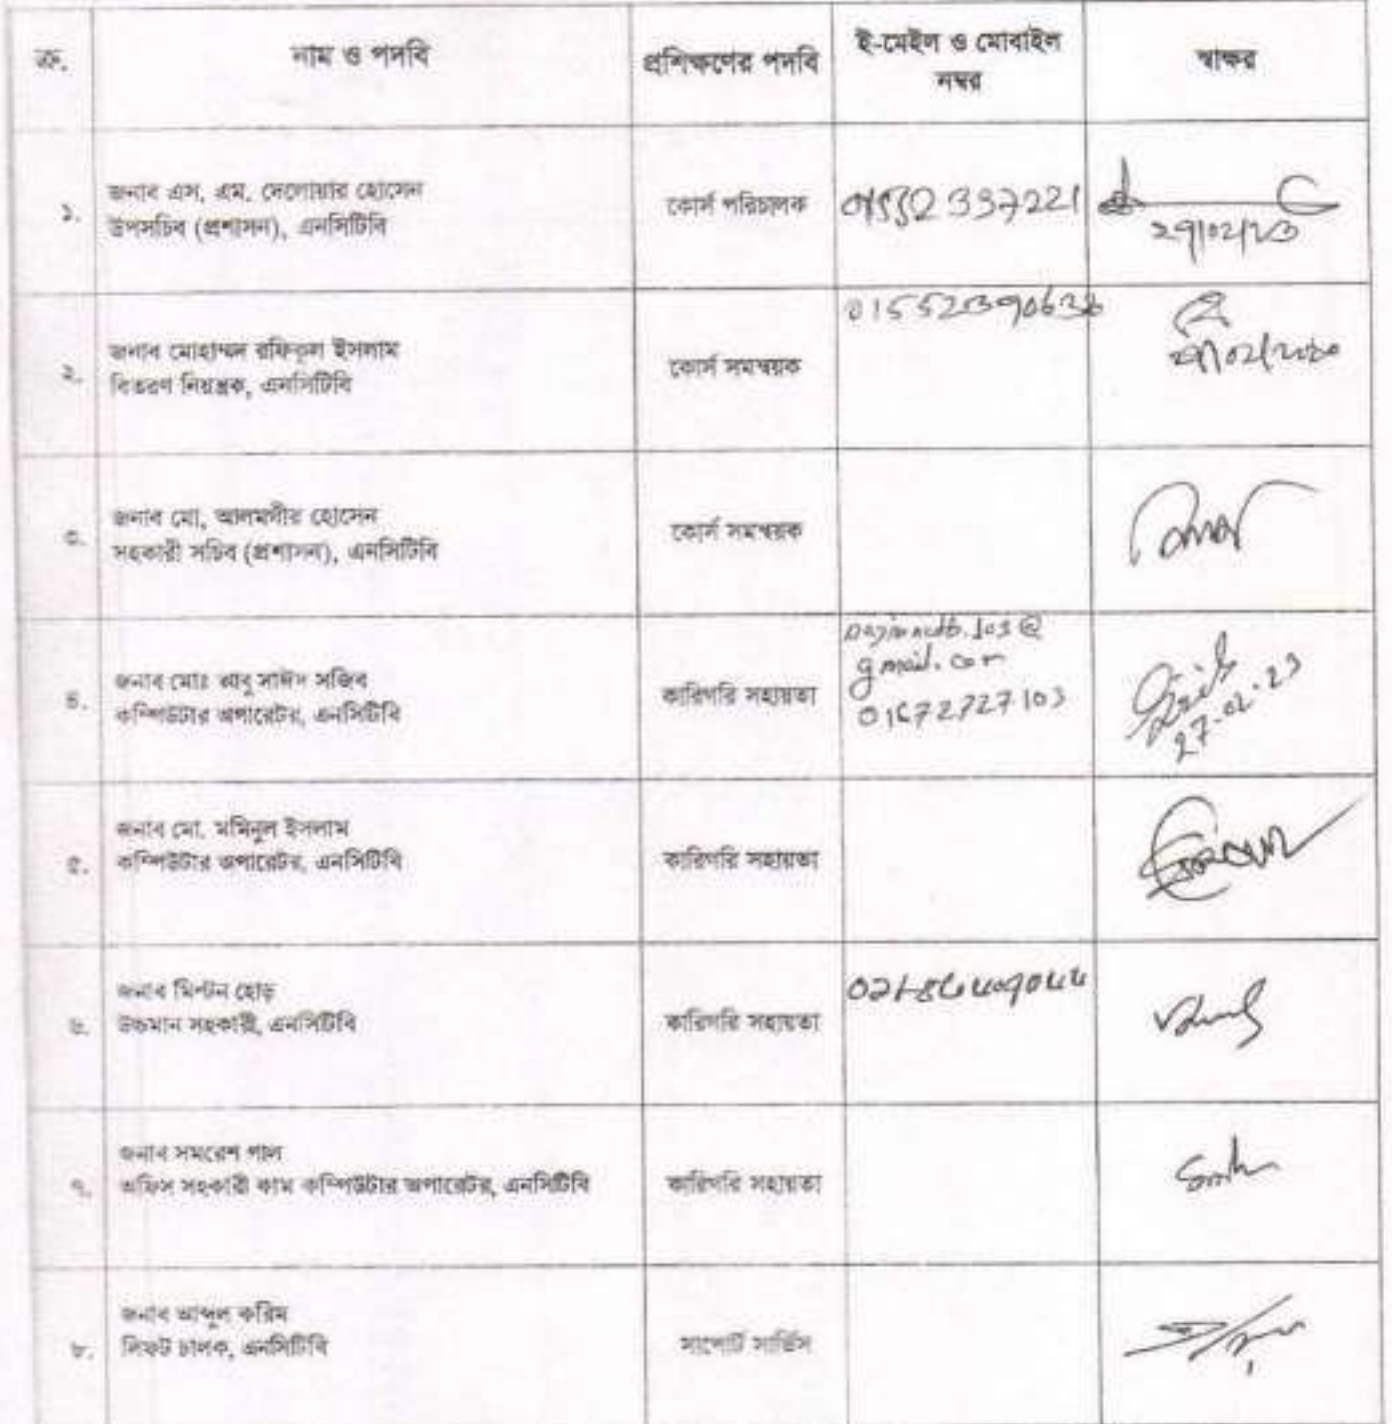 ক্র.
নাম ও পদবি
প্রশিক্ষণের পদবি
ই-মেইল ও মোবাইল
নম্বর
স্বাক্ষর
১.
জনাব এস, এম. দেলোয়ার হোসেন
উপসচিব (প্রশাসন), এনসিটিবি
কোর্স পরিচালক
01552 337221
২.
জনাব মোহাম্মদ রফিকুল ইসলাম
বিতরণ নিয়ন্ত্রক, এনসিটিবি
কোর্স সমন্বয়ক
৩.
জনাব মো, আলমগীর হোসেন
সহকারী সচিব (প্রশাসন), এনসিটিবি
কোর্স সমন্বয়ক
৪.
জনাব মোঃ আবু সাঈদ সজিব
কম্পিউটার অপারেটর, এনসিটিবি
কারিগরি সহায়তা
gmail.com
01672727103
27-02-23
৫.
জনাব মো. মমিনুল ইসলাম
কম্পিউটার অপারেটর, এনসিটিবি
কারিগরি সহায়তা
৬.
জনাব মিল্টন হোড়
উচ্চমান সহকারী, এনসিটিবি
কারিগরি সহায়তা
৭.
জনাব সমরেশ পাল
অফিস সহকারী কাম কম্পিউটার অপারেটর, এনসিটিবি
কারিগরি সহায়তা
৮.
জনাব আব্দুল করিম
লিফট চালক, এনসিটিবি
সাপোর্ট সার্ভিস